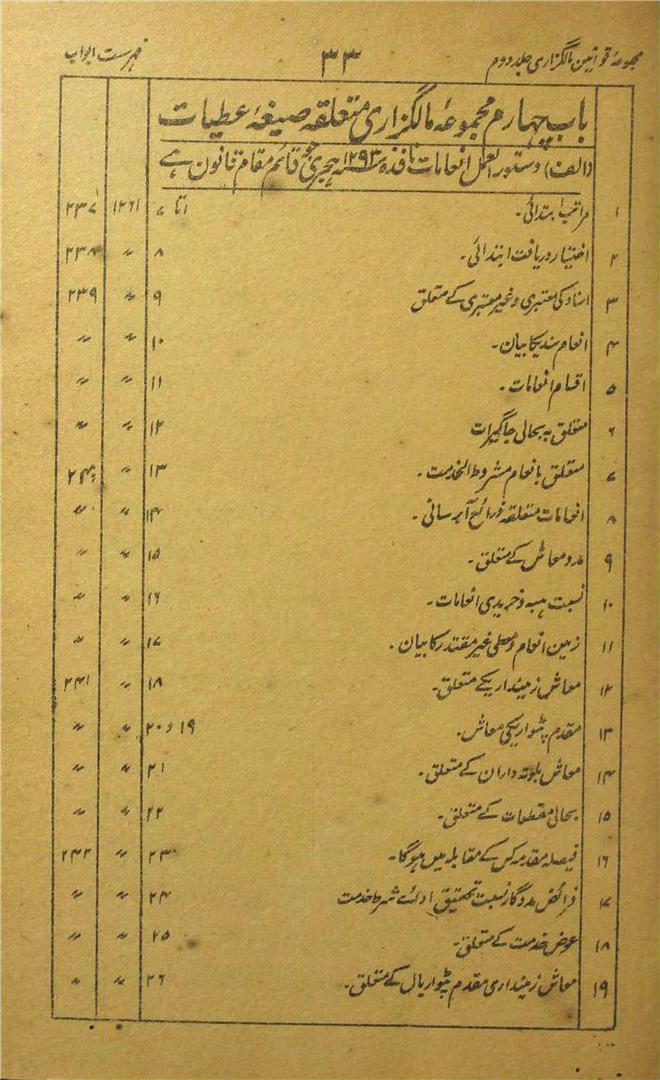 مجموعۂ قوانین مالگزاری جلد دوم ۳۳ فہرست ابواب
باب چہارم مجموعۂ مالگزاری متعلقہ صیغۂ عطیات
(الف) دستور العمل انعامات نافذہ ۱۲۹۳ ہجری جو قائم مقام قانون ہے
۱ مراتب ابتدائی۔ ۱ تا ۷ ۱۲۶۱ ۲۳۷
۲ اختیار دریافت ابتدائی۔ ۸ 〃 ۲۳۸
۳ اسناد کی معتبری و غیر معتبری کے متعلق ۹ 〃 ۲۳۹
۴ انعام سند یکا بیان۔ ۱۰ 〃 〃
۵ اقسام انعامات۔ ۱۱ 〃 〃
۶ متعلق بہ بحالی جاگیرات ۱۲ 〃 〃
۷ متعلق بانعام مشروط الخدمت۔ ۱۳ 〃 ۲۴۰
۸ انعامات متعلقہ ذرائع آبرسانی۔ ۱۴ 〃 〃
۹ مدد معاش کے متعلق۔ ۱۵ 〃 〃
۱۰ نسبت ہبہ و خریدی انعامات۔ ۱۶ 〃 〃
۱۱ زمین انعام معطی غیر مقتدر کا بیان۔ ۱۷ 〃 〃
۱۲ معاش زمینداریکے متعلق۔ ۱۸ 〃 ۲۴۱
۱۳ مقدم پٹواریکی معاش۔ ۱۹ و ۲۰ 〃 〃
۱۴ معاش بلوتہ داران کے متعلق۔ ۲۱ 〃 〃
۱۵ بحالی مقطعات کے متعلق۔ ۲۲ 〃 〃
۱۶ فیصلہ مقدمہ کس کے مقابلہ میں ہوگا۔ ۲۳ 〃 ۲۴۲
۱۷ فرائض مددگار نسبت تحقیق ادائے شرط خدمت ۲۴ 〃 〃
۱۸ عوض خدمت کے متعلق۔ ۲۵ 〃 〃
۱۹ معاش زمینداری مقدم پٹواریاں کے متعلق۔ ۲۶ 〃 〃